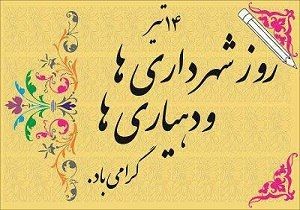 ۱۴ تیر
روز شهرداری ها
و دهیاری ها
گرامی باد.